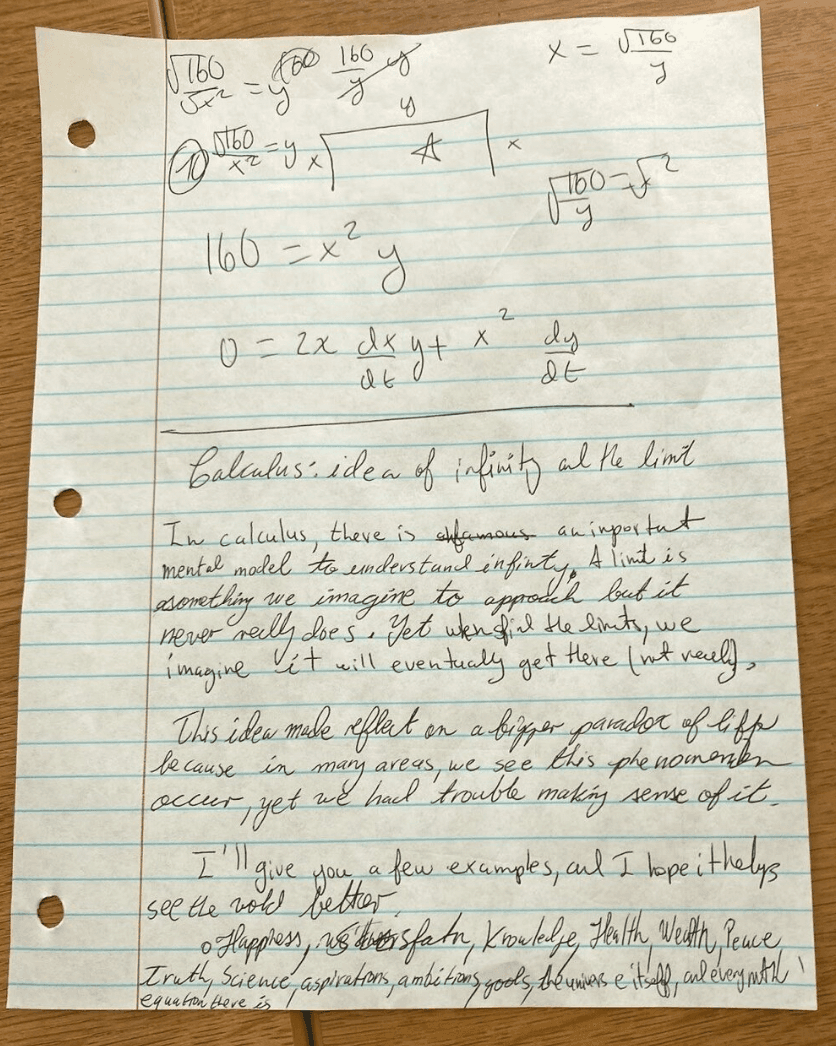 √160 / √x² = y 160/y y x = √160 / y
10 √160 / x² = y x y A x
√160 / y = √ 2
160 = x² y
0 = 2x dx/dt y + x² dy/dt
Calculus: idea of infinity and the limit
In calculus, there is an inportant
mental model to understand infinty. A limit is
asomething we imagine to approach but it
never really does. Yet the limits, we
imagine it will eventually get there (not really).
This idea made reflect on a bigger paradox of
because in many areas, we see this phenomenon
occur, yet we had trouble making sense of it.
I'll give you a few examples, and I hope it helps
see the better.
Happness, Knowledge, Health, Wealth, Peace
Truth, Science, aspirations, ambitions, goals, the univers e itself, and every math
equation there is